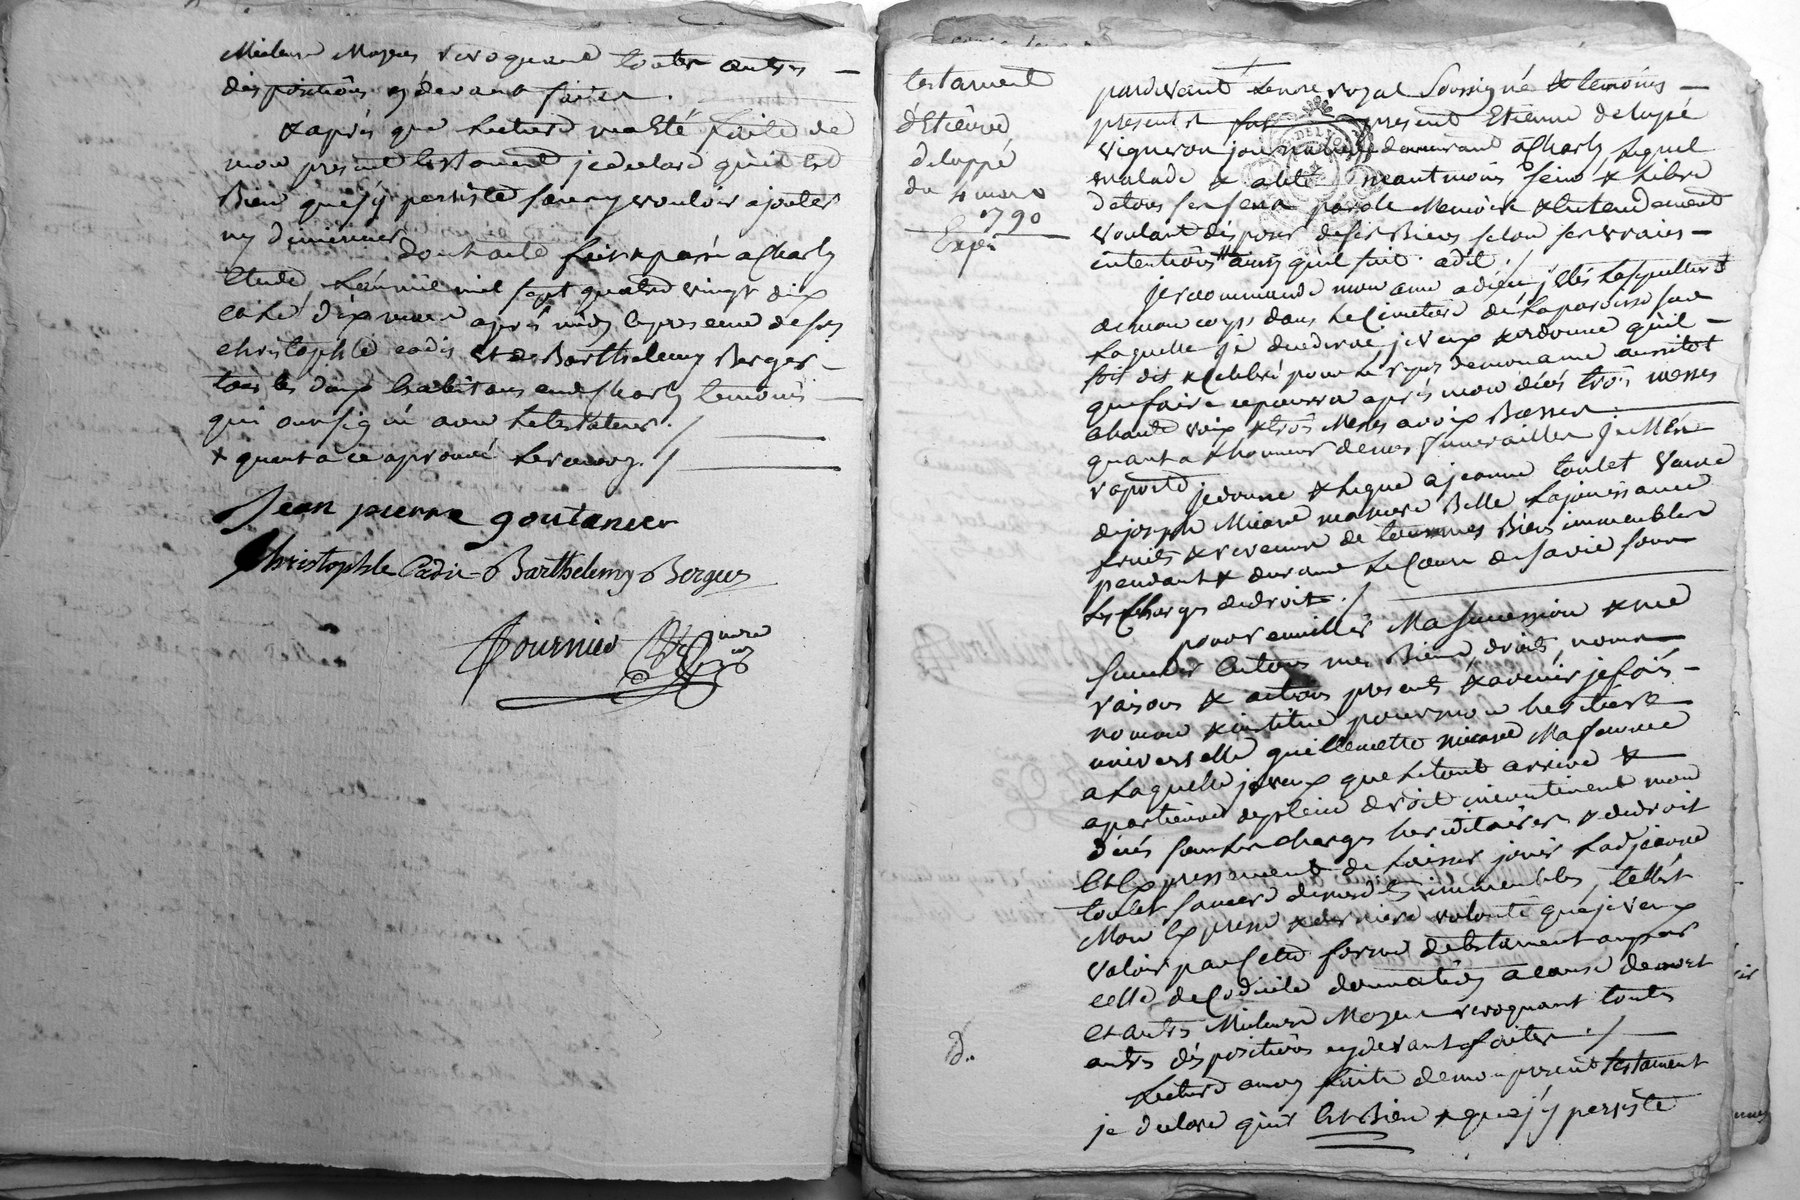 Meilleurs Moyens revoquant toutes autres —
dispositions cy devant faites .
& après que Lecture m'a Eté faite de
mon present testament je declare qu'il est
Bien que j'y persiste sans y vouloir ajouter
ny diminuer dont acte fait & passé a Charly
Etude L'an mil sept quatre vingt dix
le dix mars après midy en presence de sr
christophle cadis et de Barthelemy Berger —
tous les deux habitans aud Charly temoins
qui ont signé avec le testateur . /
& quant a ce aprouvé . /
Jean pierre goutanier
Christophle Cadis Barthelemy Berger
Fournier
testament
d'Etienne
deluppé
du 4 mars
1790
Expé
pardevant Le nre royal soussigné & temoins —
presents present Etienne deluppé
vigneron journalier demeurant a Charly Lequel
malade & alité neantmoins sain & Libre
de tous ses sens parole Memoire & Entendement
voulant disposer de ses Biens selon ses vraies —
intentions ainsy qu'il suit . a dit /
Je recommande mon ame a dieu j'élis La sepulture
de mon corps dans Le Cimetiere de La paroisse sur
Laquelle je decederai je veux & ordonne qu'il —
soit dit & Celebré pour Le repos de mon ame aussitot
que faire ce poura après mon décés trois messes
a haute voix & trois Messes a voix Basses .
quant a L'honneur de mes funerailles je M'En
raporte je donne & Legue a jeanne toulet veuve
de joseph Micard ma mere Belle La jouissance
fruits & revenus de tous mes Biens immeubles
pendant & durant Le Cours de sa vie sous
Les Charges de droit . /
pour recueillir Ma succession & me
succeder En tous mes Biens, droits, noms
raisons & actions presents & avenir je fais —
nomme & institue pour mon heritiere
universelle guillemette micard Ma femme
a Laquelle je veux que Le tout arrive &
apartienne de plein droit incontinent mon
décés sous Les charges hereditaires & de droit
Et Expressement de Laisser jouir Lad jeanne
toulet sa mere de mesdits immeubles, telle Est
Mon Expresse & derniere volonté que je veux
valoir par Cette forme de testament ou par
celle de Codicile donnation a cause de mort
et autres Meilleurs Moyens revoquant toutes
autres dispositions cy devant faites . /
Lecture a moy faite de mon present testament
je declare qu'il Est Bien & que j'y persiste